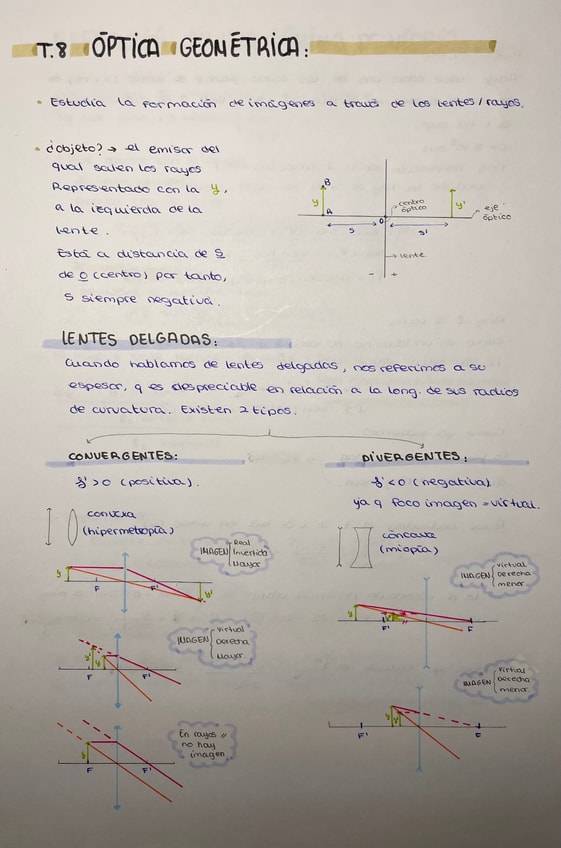 T.8 ÓPTICA GEOMÉTRICA:
• Estudia la formación de imágenes a través de los lentes/rayos.
• ¿objeto? → el emisor del
qual salen los rayos
Representado con la y,
a la izquierda de la
lente.
Está a distancia de s
de o (centro) por tanto,
s siempre negativa.
B
y
A
s
O
centro
óptico
s'
y'
eje
óptico
lente
- +
LENTES DELGADAS:
Cuando hablamos de lentes delgadas, nos referimos a su
espesor, q es despreciable en relación a la long. de sus radios
de curvatura. Existen 2 tipos.
CONVERGENTES:
f' > 0 (positiva).
convexa
(hipermetropía)
IMAGEN
Real
Invertida
Mayor
y
F
F'
y'
IMAGEN
virtual
Derecha
Mayor
y'
y
F
F'
En rayos //
no hay
imagen
y
F
F'
DIVERGENTES:
f' < 0 (negativa)
ya q foco imagen = virtual.
cóncava
(miopía)
IMAGEN
virtual
Derecha
menor
y
F'
F
IMAGEN
virtual
Derecha
menor.
y
y'
F'
F